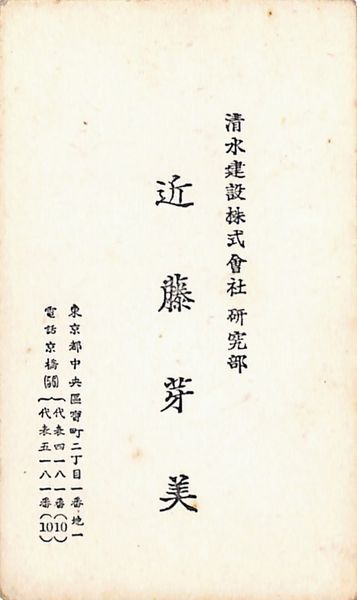 清水建設株式會社 研究部
近藤芽美
東京都中央區寶町二丁目一番地一
電話京橋(56)
代表四一八一番(10)
代表五一八一番(10)